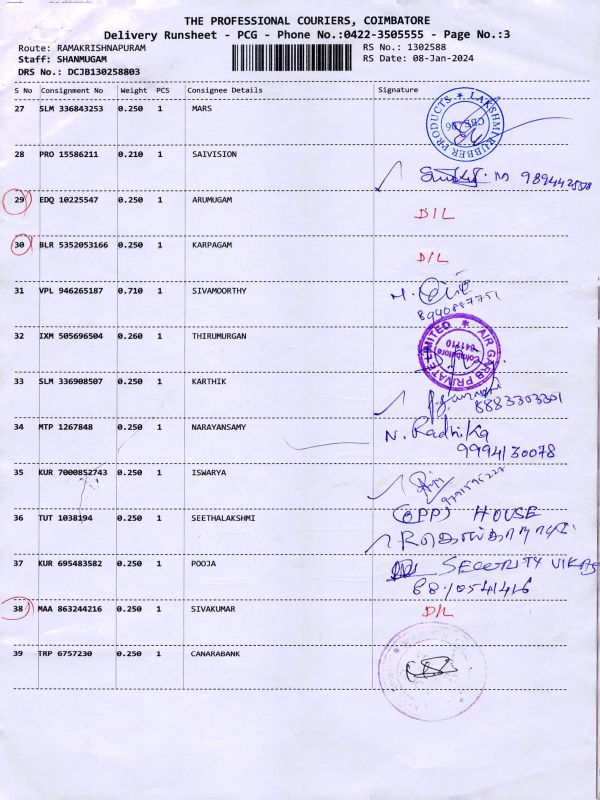 THE PROFESSIONAL COURIERS, COIMBATORE
Delivery Runsheet - PCG - Phone No.:0422-3505555 - Page No.:3
Route: RAMAKRISHNAPURAM RS No.: 1302588
Staff: SHANMUGAM RS Date: 08-Jan-2024
DRS No.: DCJB130258803
S No Consignment No Weight PCS Consignee Details Signature
27 SLM 336843253 0.250 1 MARS
LAKSHMI RUBBER PRODUCTS
28 PRO 15586211 0.210 1 SAIVISION
29 EDQ 10225547 0.250 1 ARUMUGAM D/L
30 BLR 5352053166 0.250 1 KARPAGAM D/L
31 VPL 946265187 0.710 1 SIVAMOORTHY
32 IXM 505696504 0.260 1 THIRUMURGAN
AIR GARB PRIVATE LIMITED
Coimbatore
641110
33 SLM 336908507 0.250 1 KARTHIK
8883303301
34 MTP 1267848 0.250 1 NARAYANSAMY N. Radhika
9994130078
35 KUR 7000852743 0.250 1 ISWARYA
36 TUT 1038194 0.250 1 SEETHALAKSHMI (OPP) HOUSE
37 KUR 695483582 0.250 1 POOJA SECURITY
38 MAA 863244216 0.250 1 SIVAKUMAR D/L
39 TRP 6757230 0.250 1 CANARABANK